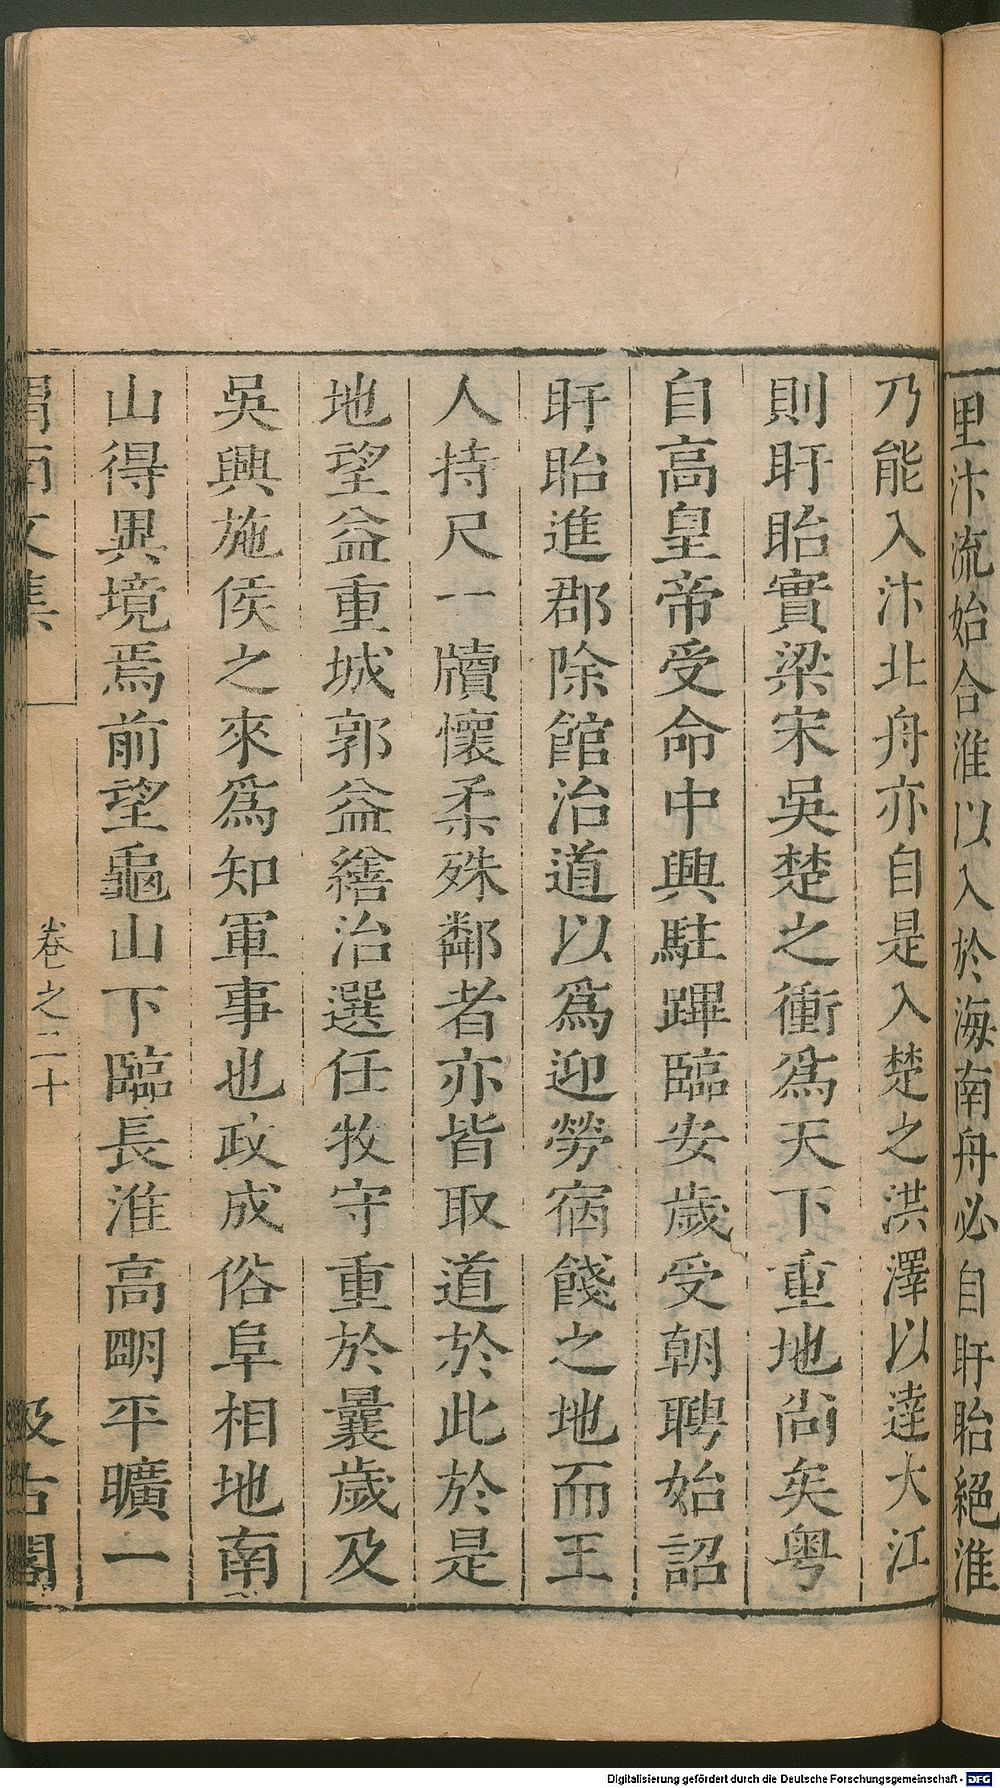 里汴流始合淮以入於海南舟必自盱眙絕淮
乃能入汴北舟亦自是入楚之洪澤以達大江
則盱眙實梁宋吳楚之衝爲天下重地尙矣粤
自高皇帝受命中興駐蹕臨安歲受朝聘始詔
盱眙進郡除館治道以爲迎勞宿餞之地而王
人持尺一牘懷柔殊鄰者亦皆取道於此於是
地望益重城郭益繕治選任牧守重於曩歲及
吳興施侯之來爲知軍事也政成俗阜相地南
山得異境焉前望龜山下臨長淮高明平曠一
渭南文集
卷之二十
汲古閣
Digitalisierung gefördert durch die Deutsche Forschungsgemeinschaft - DFG